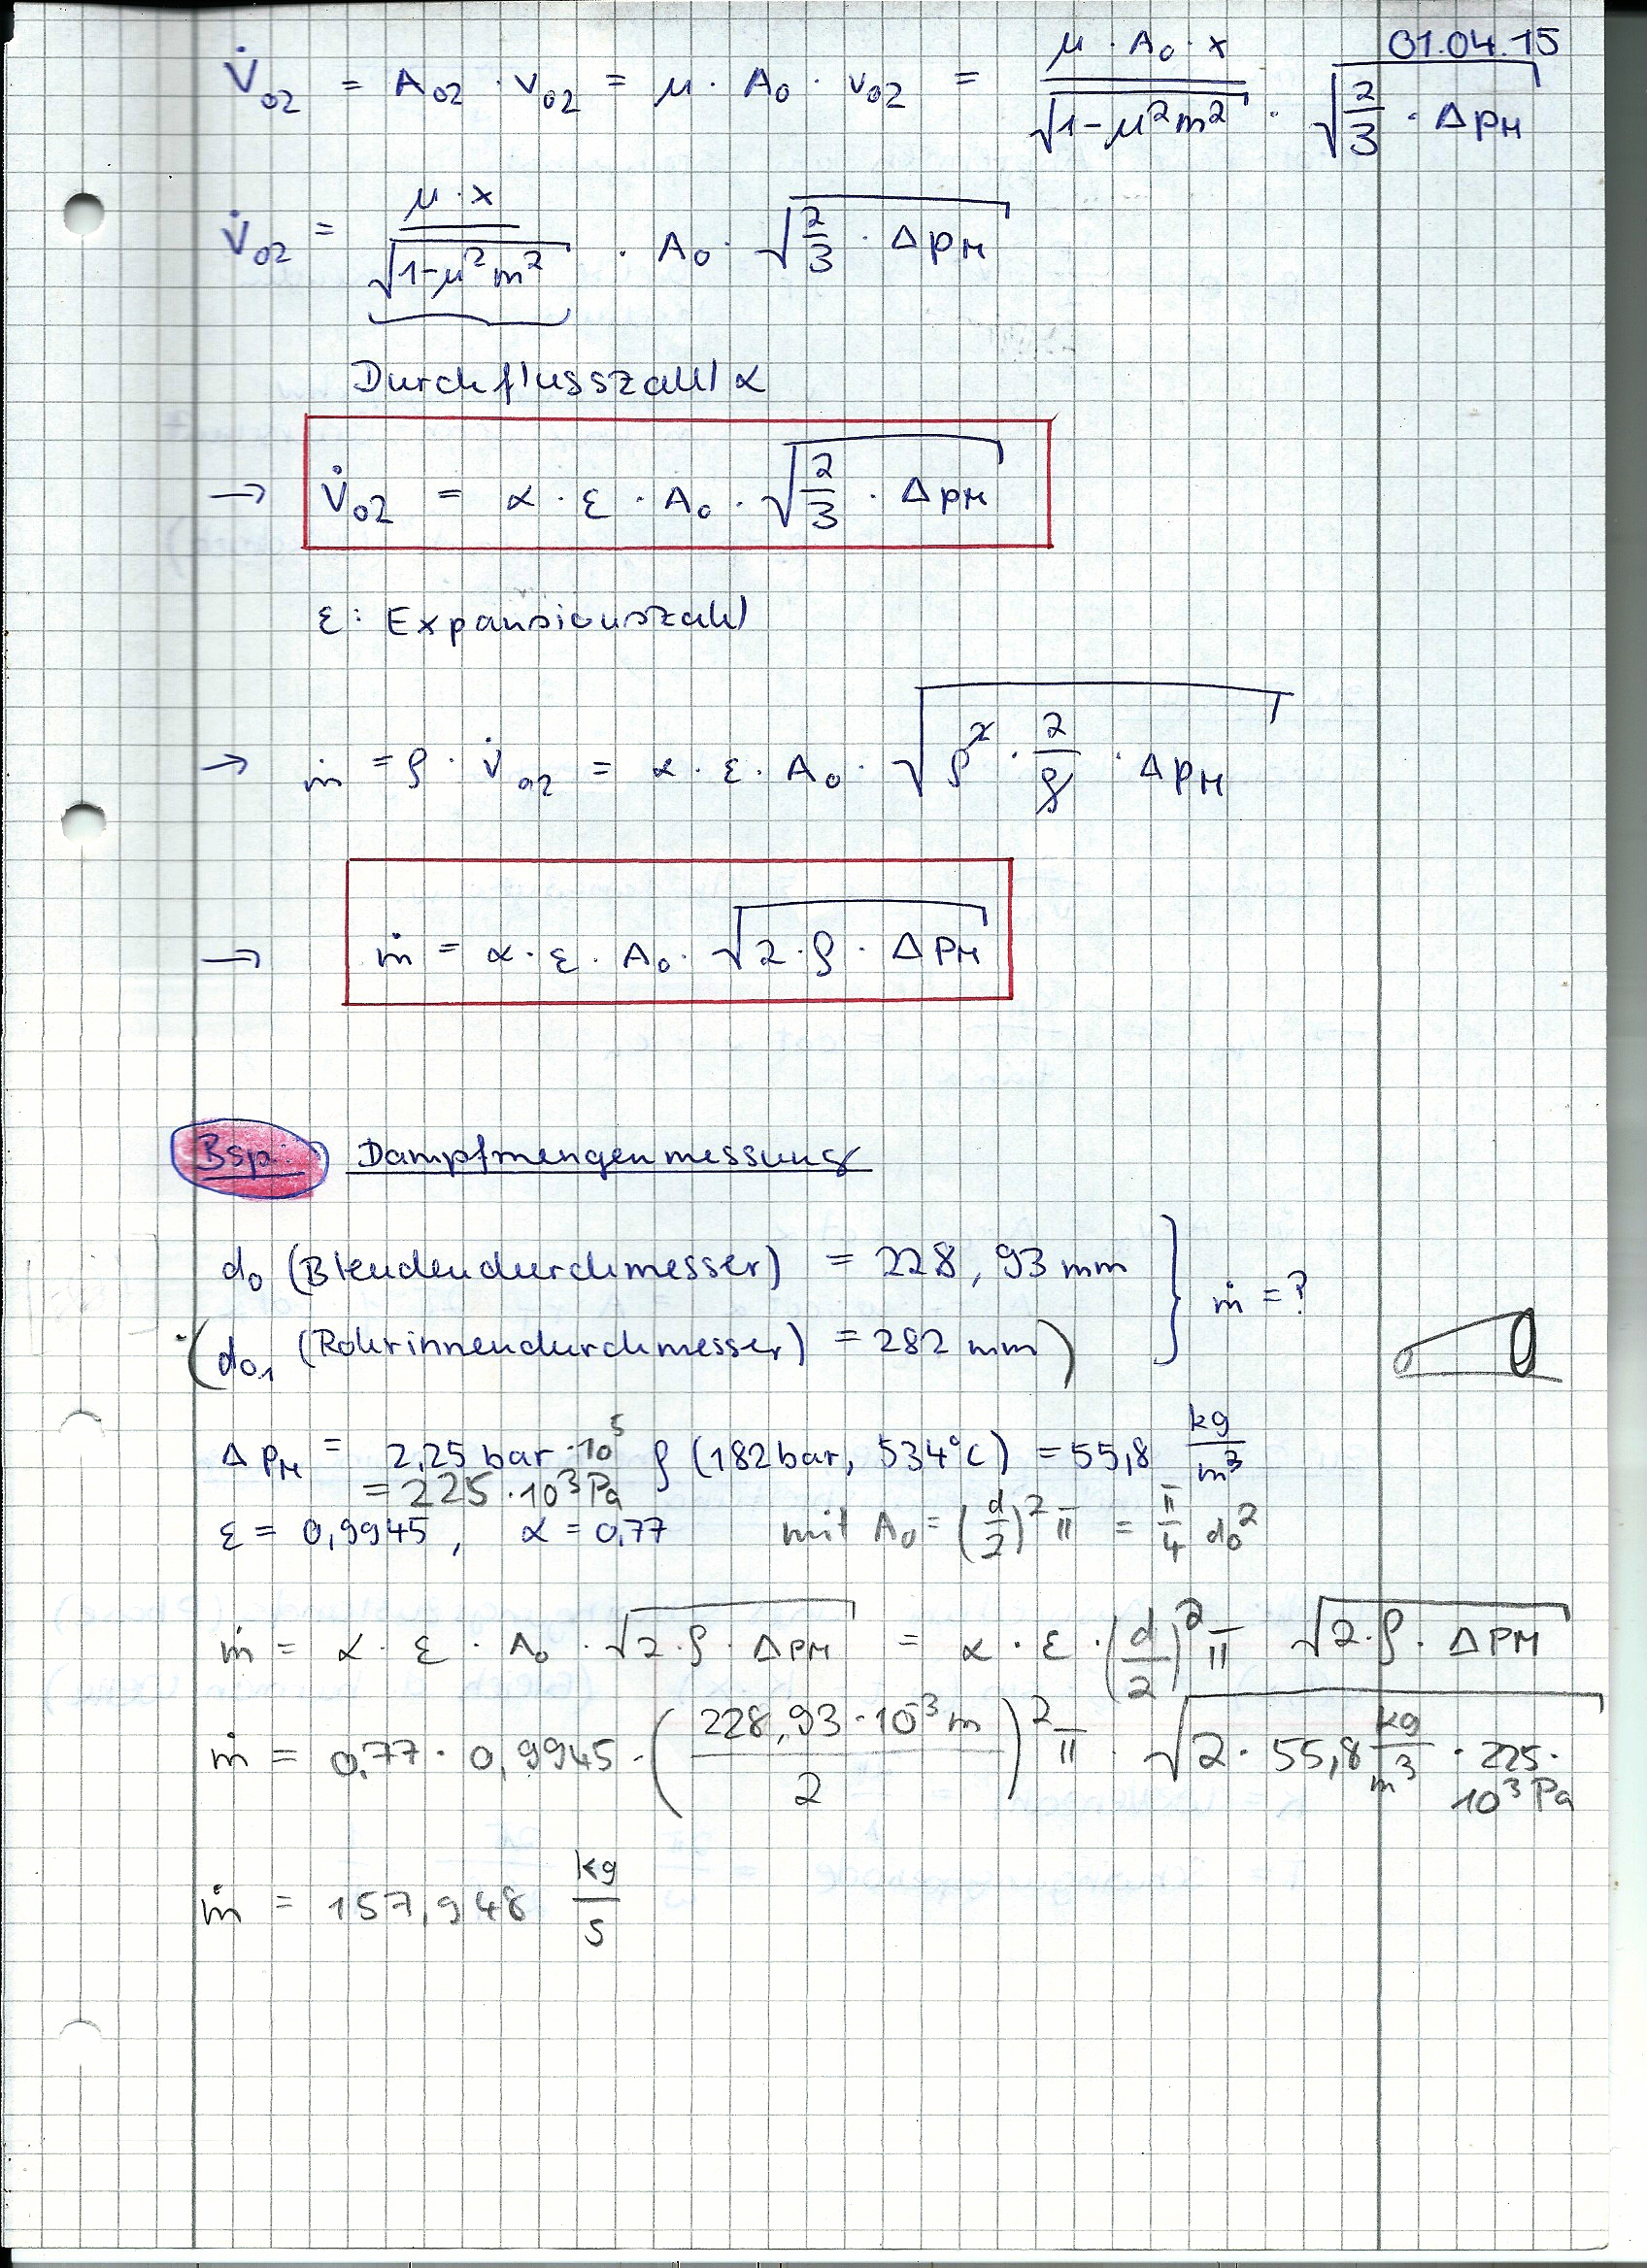 01.04.15
V̇₀₂ = A₀₂ · v₀₂ = μ · A₀ · v₀₂ = (μ · A₀ · x)/√(1-μ²m²) · √(2/3 · Δp_M)
V̇₀₂ = (μ · x)/√(1-μ²m²) · A₀ · √(2/3 · Δp_M)
Durchflusszahl α
→ V̇₀₂ = α · ε · A₀ · √(2/3 · Δp_M)
ε: Expansionszahl
→ ṁ = ρ · V̇₀₂ = α · ε · A₀ · √(ρ² · 2/ρ · Δp_M)
→ ṁ = α · ε · A₀ · √(2 · ρ · Δp_M)
Bsp: Dampfmengenmessung
d₀ (Blendendurchmesser) = 228,93 mm } ṁ = ?
(d₀₁ (Rohrinnendurchmesser) = 282 mm)
Δp_M = 2,25 bar · 10⁵ ρ (182 bar, 534°C) = 55,8 kg/m³
= 225 · 10³ Pa
ε = 0,9945 , α = 0,77 mit A₀ = (d/2)² π = π/4 d₀²
ṁ = α · ε · A₀ · √(2 · ρ · Δp_M) = α · ε · (d/2)² π √(2 · ρ · Δp_M)
ṁ = 0,77 · 0,9945 · ((228,93 · 10⁻³ m)/2)² π · √(2 · 55,8 kg/m³ · 225 · 10³ Pa)
ṁ = 157,948 kg/s